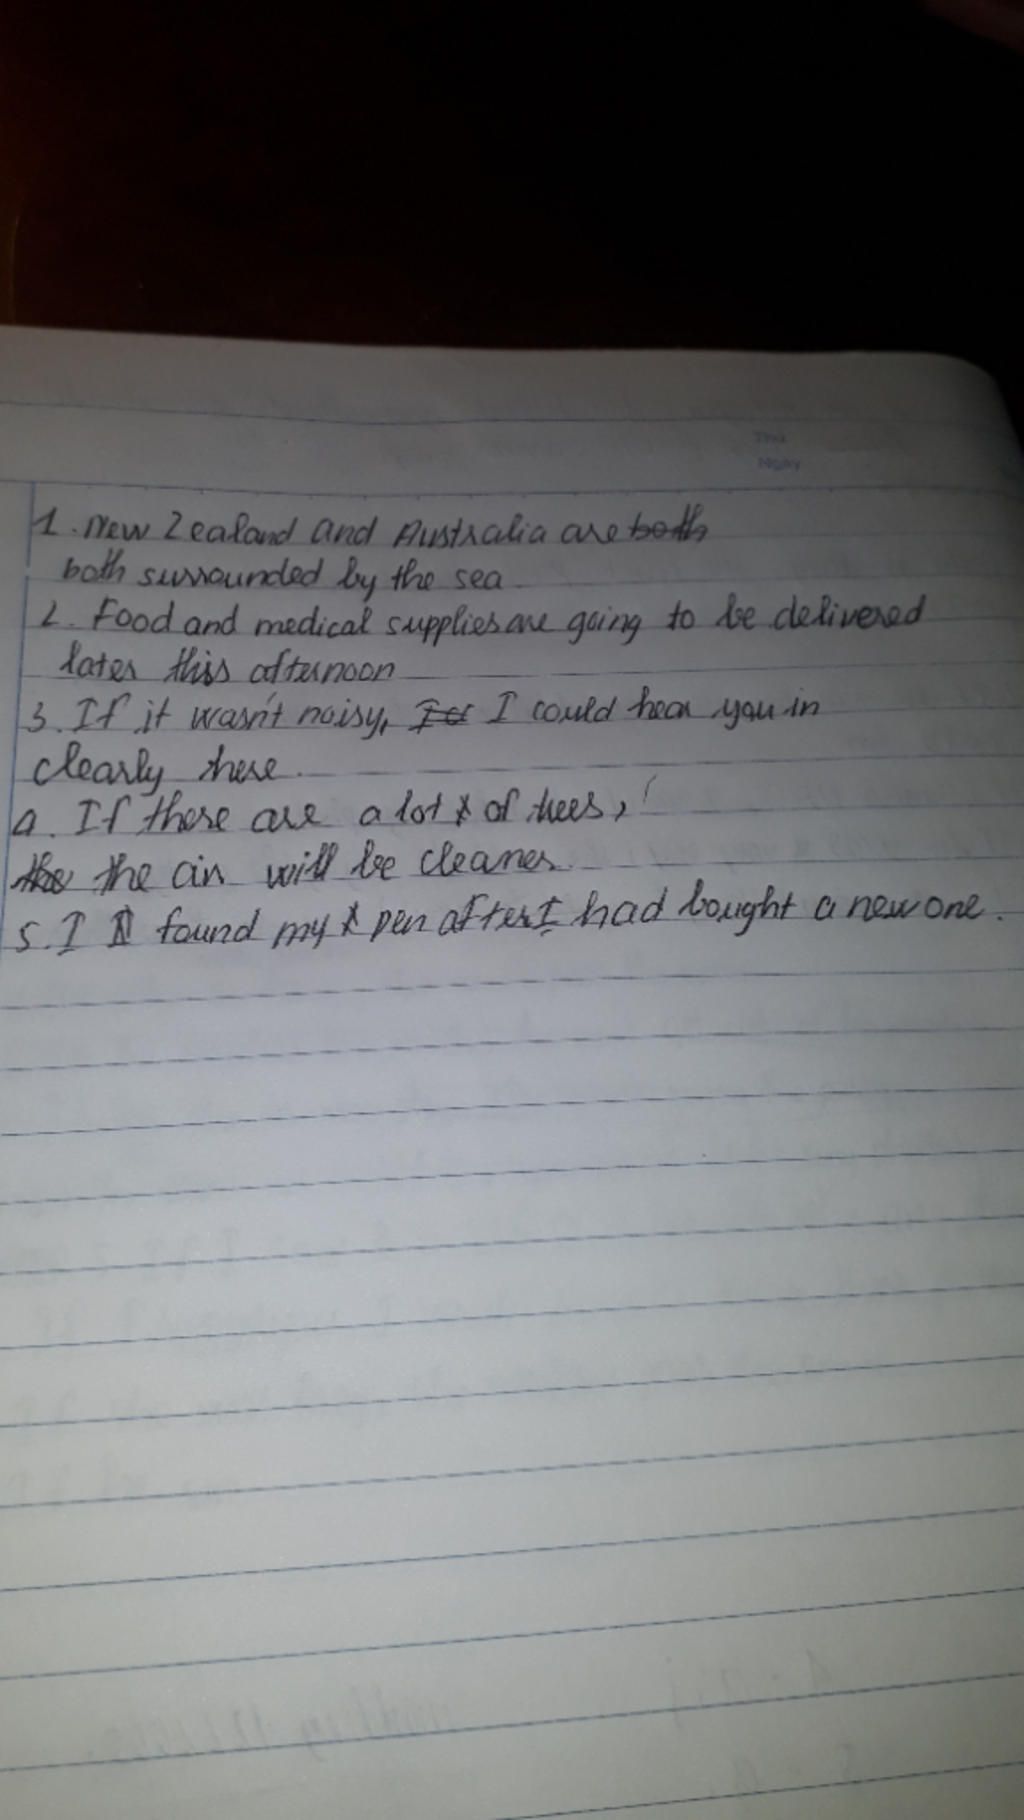 Thứ
Ngày
1. New Zealand and Australia are both
both surrounded by the sea
2. Food and medical supplies are going to be delivered
later this afternoon
3. If it wasn't noisy, I could hear you in
clearly there.
a. If there are a lot of trees,
the the air will be cleaner.
5. I found my pen after I had bought a new one.